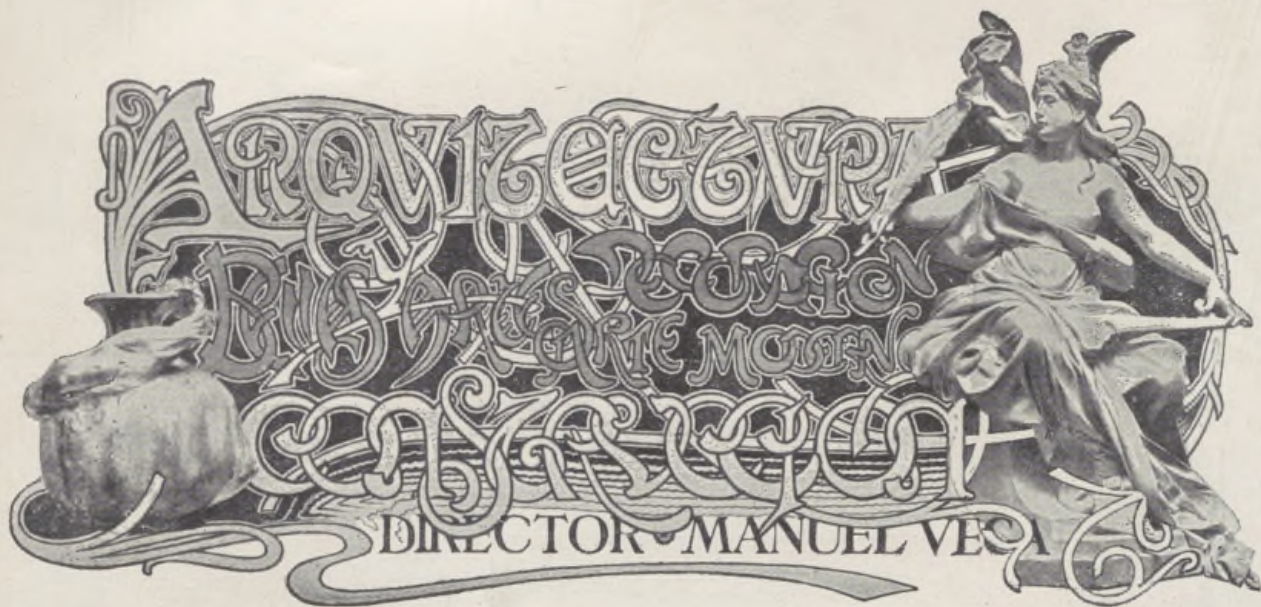 ARQVITECTVRA
BELLAS ARTES DECORACION
ARTE MODERNO
CONSTRUCCION
DIRECTOR • MANUEL VEGA